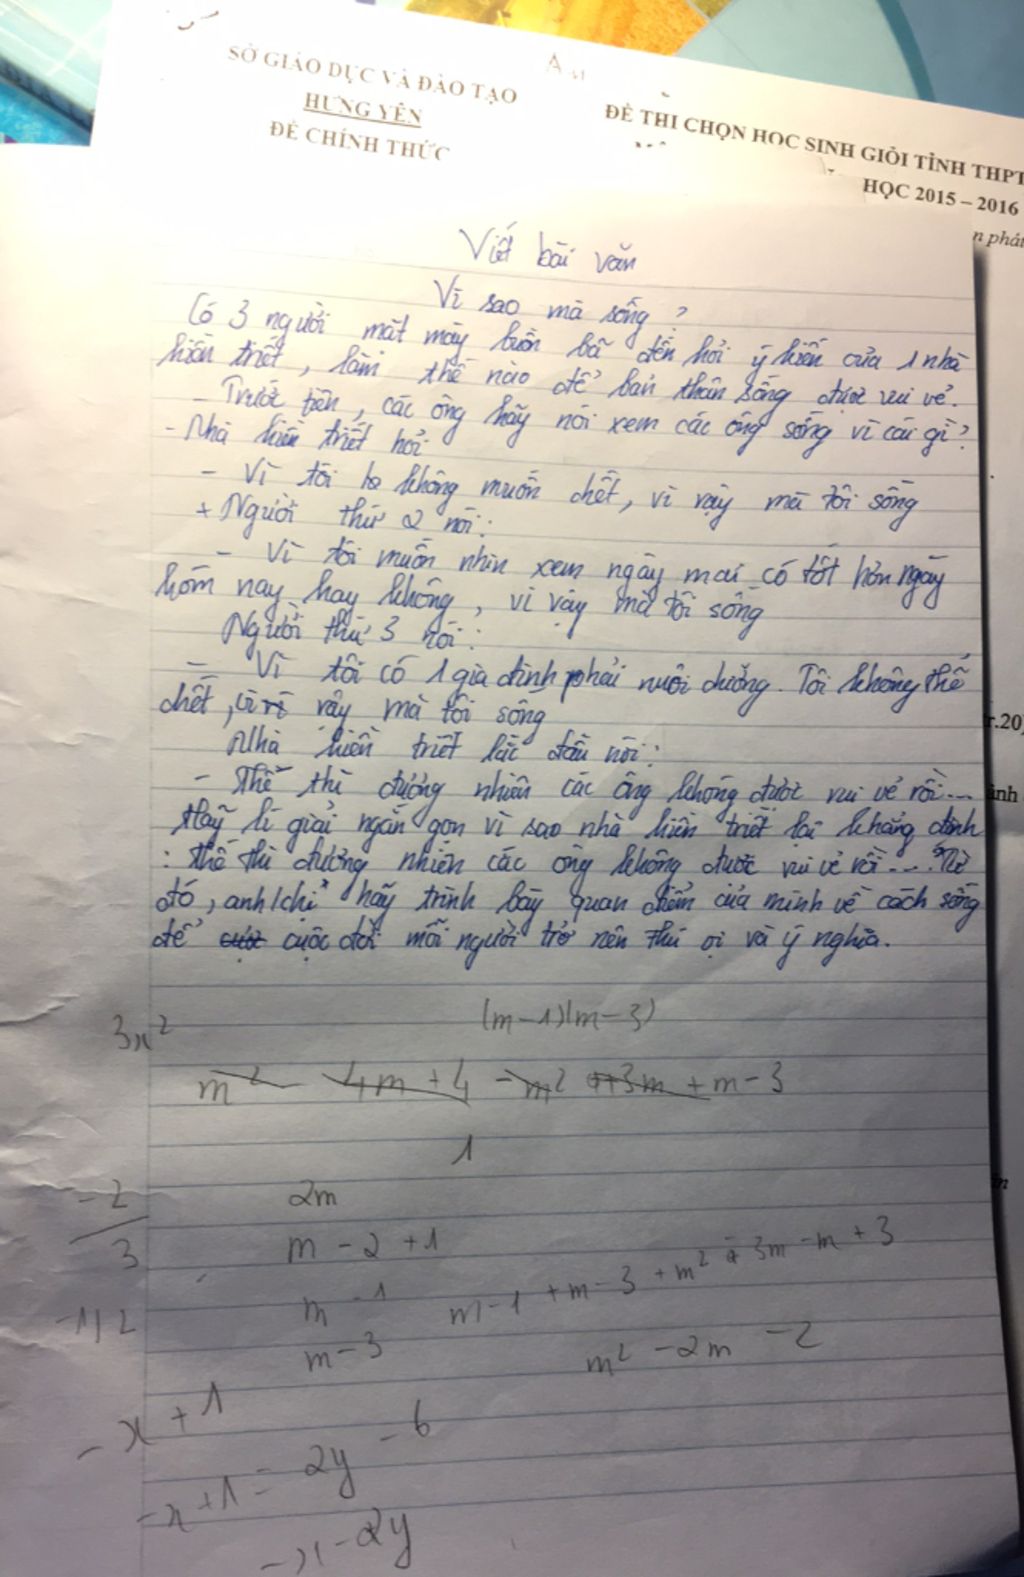 SỞ GIÁO DỤC VÀ ĐÀO TẠO
HƯNG YÊN
ĐỀ CHÍNH THỨC
ĐỀ THI CHỌN HỌC SINH GIỎI TỈNH THPT
HỌC 2015 – 2016
n phát
Viết bài văn
Vì sao mà sống?
Có 3 người mặt mày buồn bã đến hỏi ý kiến của 1 nhà
hiền triết, làm thế nào để bản thân sống được vui vẻ.
- Trước tiên, các ông hãy nói xem các ông sống vì cái gì?
- Nhà hiền triết hỏi
- Vì tôi không muốn chết, vì vậy mà tôi sống
+ Người thứ 2 nói:
- Vì tôi muốn nhìn xem ngày mai có tốt hơn ngày
hôm nay hay không, vì vậy mà tôi sống
Người thứ 3 nói:
- Vì tôi có 1 gia đình phải nuôi dưỡng. Tôi không thể
chết, vì vậy mà tôi sống
Nhà hiền triết lắc đầu nói:
- Thế thì đương nhiên các ông không được vui vẻ rồi...
Hãy lí giải ngắn gọn vì sao nhà hiền triết lại khẳng định
: Thế thì đương nhiên các ông không được vui vẻ rồi...? Từ
đó, anh/chị hãy trình bày quan điểm của mình về cách sống
để cuộc đời mỗi người trở nên thú vị và ý nghĩa.
r.20
ảnh
3x²
(m-1)(m-3)
m² - 4m + 4 - m² + 3m + m - 3
1
-2
3
2m
m - 2 + 1
-1/2
m - 1
m - 1 + m - 3 + m² - 3m - m + 3
m - 3
m² - 2m - 2
- x + 1
-x + 1 = 2y - 6
-x - 2y